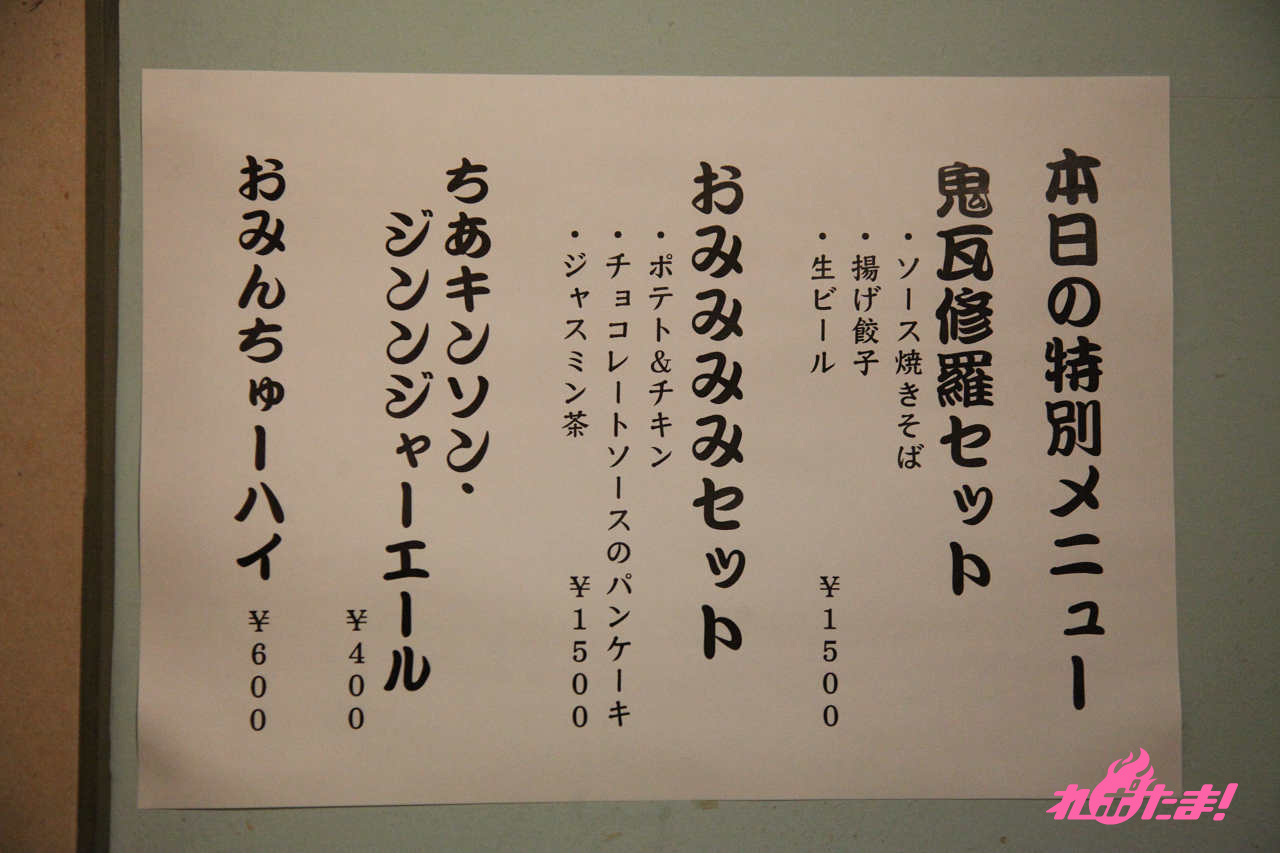 本日の特別メニュー
鬼瓦修羅セット
・ソース焼きそば
・揚げ餃子
・生ビール
¥1500
おみみみみセット
・ポテト&チキン
・チョコレートソースのパンケーキ
・ジャスミン茶
¥1500
ちあキンソン・
ジンンジャーエール
¥400
おみんちゅーハイ
¥600
れポたま!